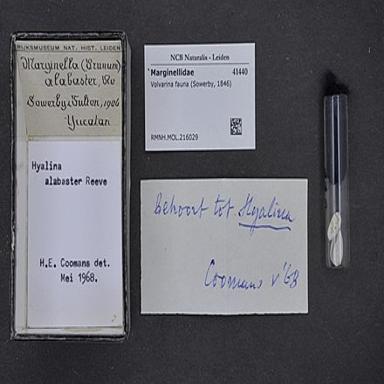 RIJKSMUSEUM NAT. HIST. LEIDEN
Marginella (Prunum)
alabaster, Rve
Sowerby & Fulton, 1906
Yucatan
Hyalina
alabaster Reeve
H.E. Coomans det.
Mei 1968.
NCB Naturalis - Leiden
Marginellidae 41440
Volvarina fauna (Sowerby, 1846)
RMNH.MOL.216029
behoort tot Hyalina
Coomans V'68